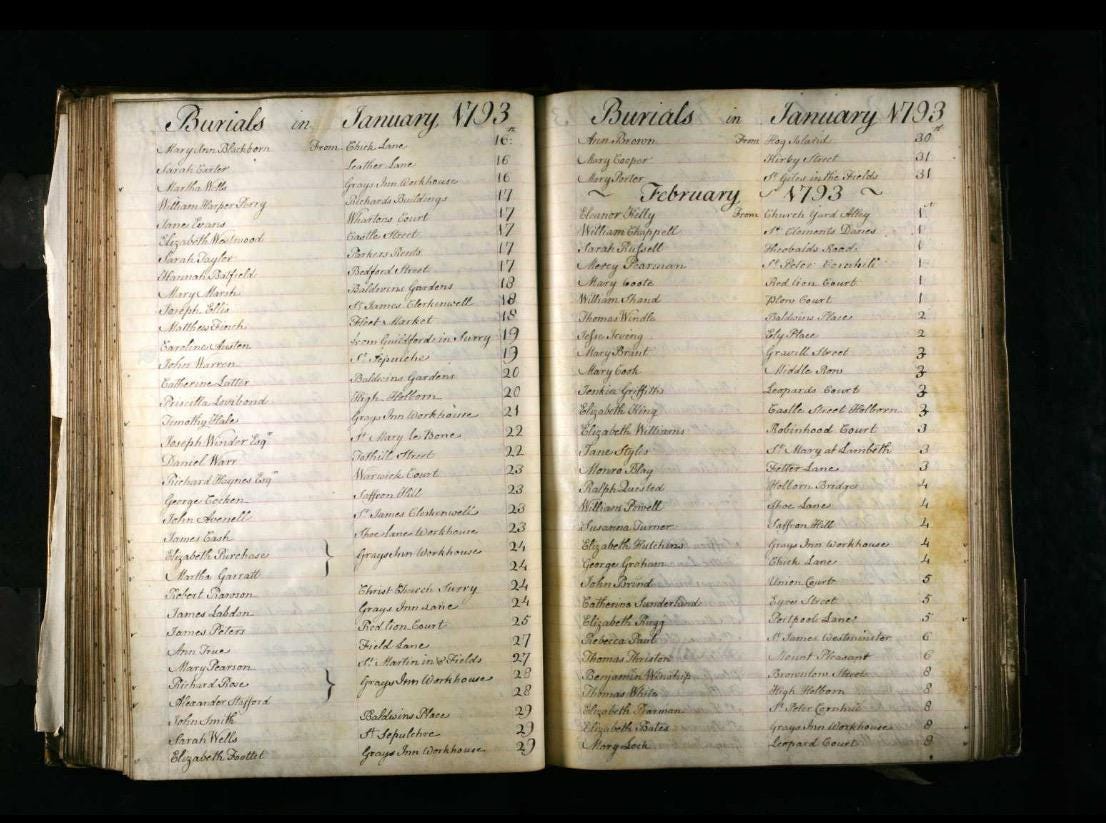 Burials in January 1793
Mary Ann Blackborn From Chick Lane 16th
Sarah Carter Leather Lane 16
Martha Wells Grays Inn Workhouse 16
William Harper Perry Richards Buildings 17
Jane Evans Whartons Court 17
Elizabeth Westwood Castle Street 17
Sarah Taylor Parkers Rents 17
Hannah Batfield Bedford Street 17
Mary Marsh Baldwins Gardens 18
Joseph Ellis St James Clerkenwell 18
Matthew French Fleet Market 18
Caroline Austen from Guildford in Surry 19
John Warren St Sepulchre 19
Catherine Latter Baldwins Gardens 20
Priscilla Lovibond High Holborn 20
Timothy Hale Grays Inn Workhouse 21
Joseph Winder Esqr St Mary le Bone 22
Daniel Warr Tothill Street 22
Richard Haynes Esqr Warwick Court 23
George Saffron Hill 23
John Avenell St James Clerkenwell 23
James Cash Shoe Lane Workhouse 23
Elizabeth Purchase } Grays Inn Workhouse 24
Martha Garratt 24
Robert Rawson Christ Church Surry 24
James Labdon Grays Inn Lane 24
James Peters Red Lion Court 25
Ann True Field Lane 27
Mary Pearson St Martin in Fields 27
Richard Rose } Grays Inn Workhouse 28
Alexander Stafford 28
John Smith Baldwins Place 29
Sarah Wells St Sepulchre 29
Elizabeth Grays Inn Workhouse 29
Burials in January 1793
Ann Brown From Hog Island 30th
Mary Cooper Kirby Street 31
Mary Porter St Giles in the Fields 31
~ February 1793 ~
Eleanor Kelly From Church Yard Alley 1st
William Chappell St Clements Danes 1
Sarah Russell Theobalds Road 1
Mercy Pearman St Peter Cornhill 1
Mary Coote Red Lion Court 1
William Shand Plow Court 1
Thomas Windle Baldwins Place 2
Jesse Irving Ely Place 2
Mary Brant Gravill Street 3
Mary Cook Middle Row 3
Jenkin Griffiths Leopards Court 3
Elizabeth King Castle Street Holborn 3
Elizabeth Williams Robinhood Court 3
Jane Styles St Mary at Lambeth 3
Monro Blag Fetter Lane 3
Ralph Quested Holborn Bridge 4
William Powell Shoe Lane 4
Susanna Turner Saffron Hill 4
Elizabeth Hutchins Grays Inn Workhouse 4
George Graham Chick Lane 4
John Brind Union Court 5
Catherine Sunderland Eyres Street 5
Elizabeth Rugg Portpool Lane 5
Rebecca Paul St James Westminster 6
Thomas Thriston Mount Pleasant 6
Benjamin Winship Brownlow Street 8
Thomas White High Holborn 8
Elizabeth Pearman St Peter Cornhill 8
Elizabeth Bates Grays Inn Workhouse 8
Mary Lock Leopard Court 8